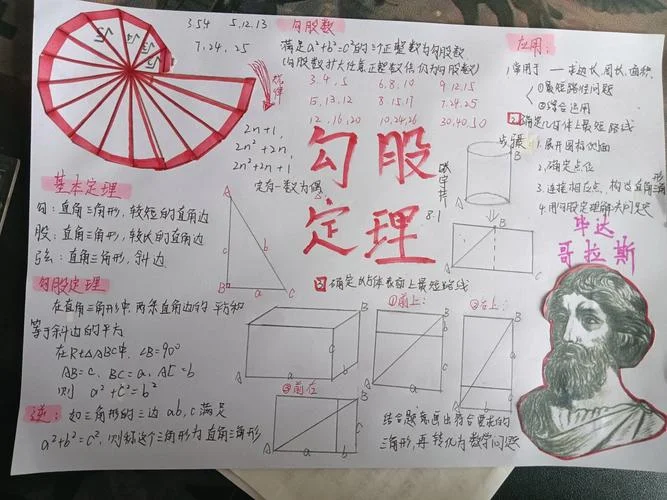 3.5 4  5.12.13
7.24.25
√5
规律
2n+1,
2n²+2n,
2n²+2n+1
定有一数为偶
勾股数
满足a²+b²=c²的三个正整数为勾股数
(勾股数扩大任意正整数倍,仍为勾股数)
3.4.5  6.8.10  9.12.15
15.13.12  8.15.17  7.24.25
12.16.20  10.24.26  30.40.50
勾股
定理
8.1
基本定理
勾:直角三角形,较短的直角边
股:直角三角形,较长的直角边
弦:直角三角形,斜边
A
c
b
B
a
C
勾股定理
在直角三角形中,两条直角边的平方和
等于斜边的平方
在Rt△ABC中,∠B=90°
AB=c, BC=a, AC=b
则 a²+c²=b²
逆:如三角形的三边a,b,c满足
a²+b²=c²,则称这个三角形为直角三角形
应用:
1.常用于——求边长,周长,面积.
①最短路径问题
②综合运用
确定几何体上最短路线
步骤
1.展开圆柱侧面
2.确定点位
3.连接相应点,构造直角三角形
4.用勾股定理解决问题
B
A
B
A
毕达
哥拉斯
确定长方体表面上最短路线
①前上:
②右上:
③前右
B
A
B
A
a
B
A
b
B
A
a
b
结合题意画出符合要求的
三角形,再转化为数学问题